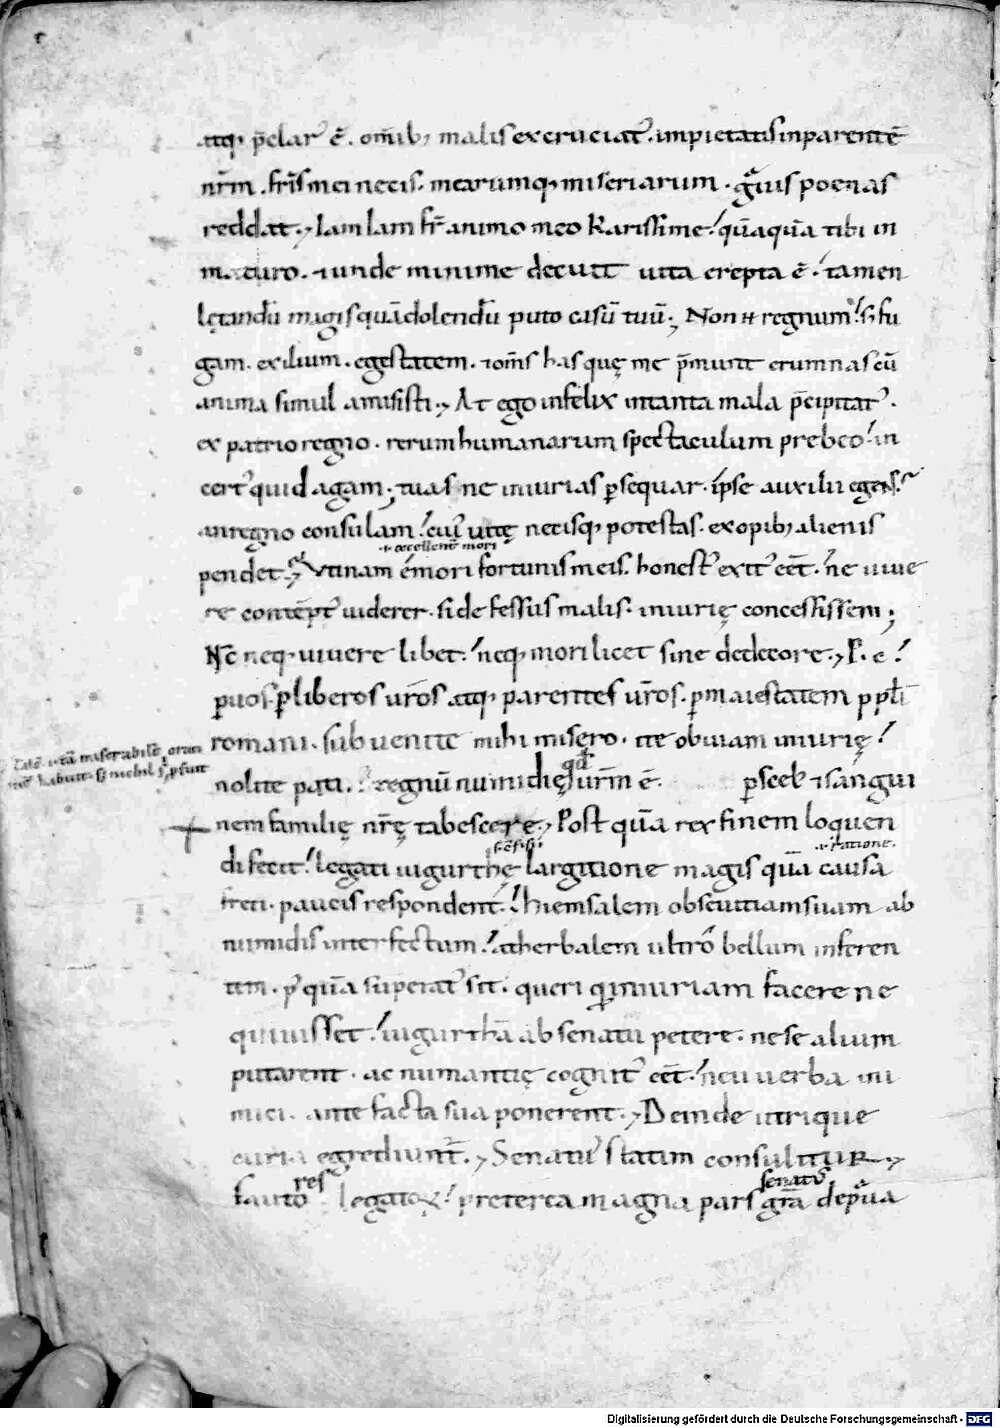 atq; p̄clar᷒ ē. om̄ib; malis excruciat᷒. impietatis in parentē
nr̄m. fr̄is mei necis. mearumq; miseriarum. gͣuis poenas
reddat. Iam Iam fr̄ animo meo karissime! quāquā tibi in
maturo. ⁊ unde minime decuit uita erepta ē. tamen
lętandū magis quā dolendū puto casū tuū; Non .n. regnum. s; fu
gam. exilium. egestatem. ⁊ om̄s has quę me p̄munt erumnas cū
anima simul amisisti. At ego infelix in tanta mala p̄cipitat᷒.
ex patrio regno. rerum humanarum spectaculum prebeo. in
cert᷒ quid agam; tuas ne iniurias ꝑsequar. ipse auxilii egens.
an regno consulam. cui᷒ uitę necisq; potestas. ex opib; alienis
.i. occellent̄ mori
pendet. Vtinam ēmori fortunis meis. honest᷒ exit᷒ eēt. ne uiue
re contēpt᷒ uiderer. si defessus malis. iniurię concessissem;
Nc̄ neq; uiuere libet. neq; mori licet sine dedecore. P. c.
ꝑ uos. ꝑ liberos ur̄os. atq; parentes ur̄os. ꝑ maiestatem p pl̄i
romani. subuenite mihi misero. ite obuiam iniurię!
miserabilē oran
habuit. s; nichil
qd̄
nolite pati. regnū numidię ur̄m ē. ꝑ scel; ⁊ sangui
nem familię nr̄ę tabescere. Post quā rex finem loquen
sēnsisti
.i. ratione.
di fecit. legati iugurthę largitione magis quā causa
freti. paucis respondent. hiemsalem ob seuitiam suam ab
numidis interfectum. atherbalem ultrō bellum inferen
tem. p᷒ quā superat᷒ sit. queri qͩ iniuriam facere ne
quiuisset. iugurthā ab senatu petere. ne se alium
putarent. ac numantię cognit᷒ eēt. neu uerba ini
mici. ante facta sua ponerent. Deinde utrique
curia egrediunt᷒. Senatu᷒ statim consulitur
res
senatu᷒
fauto legatoꝝ. preterea magna pars gr̄a depͣua